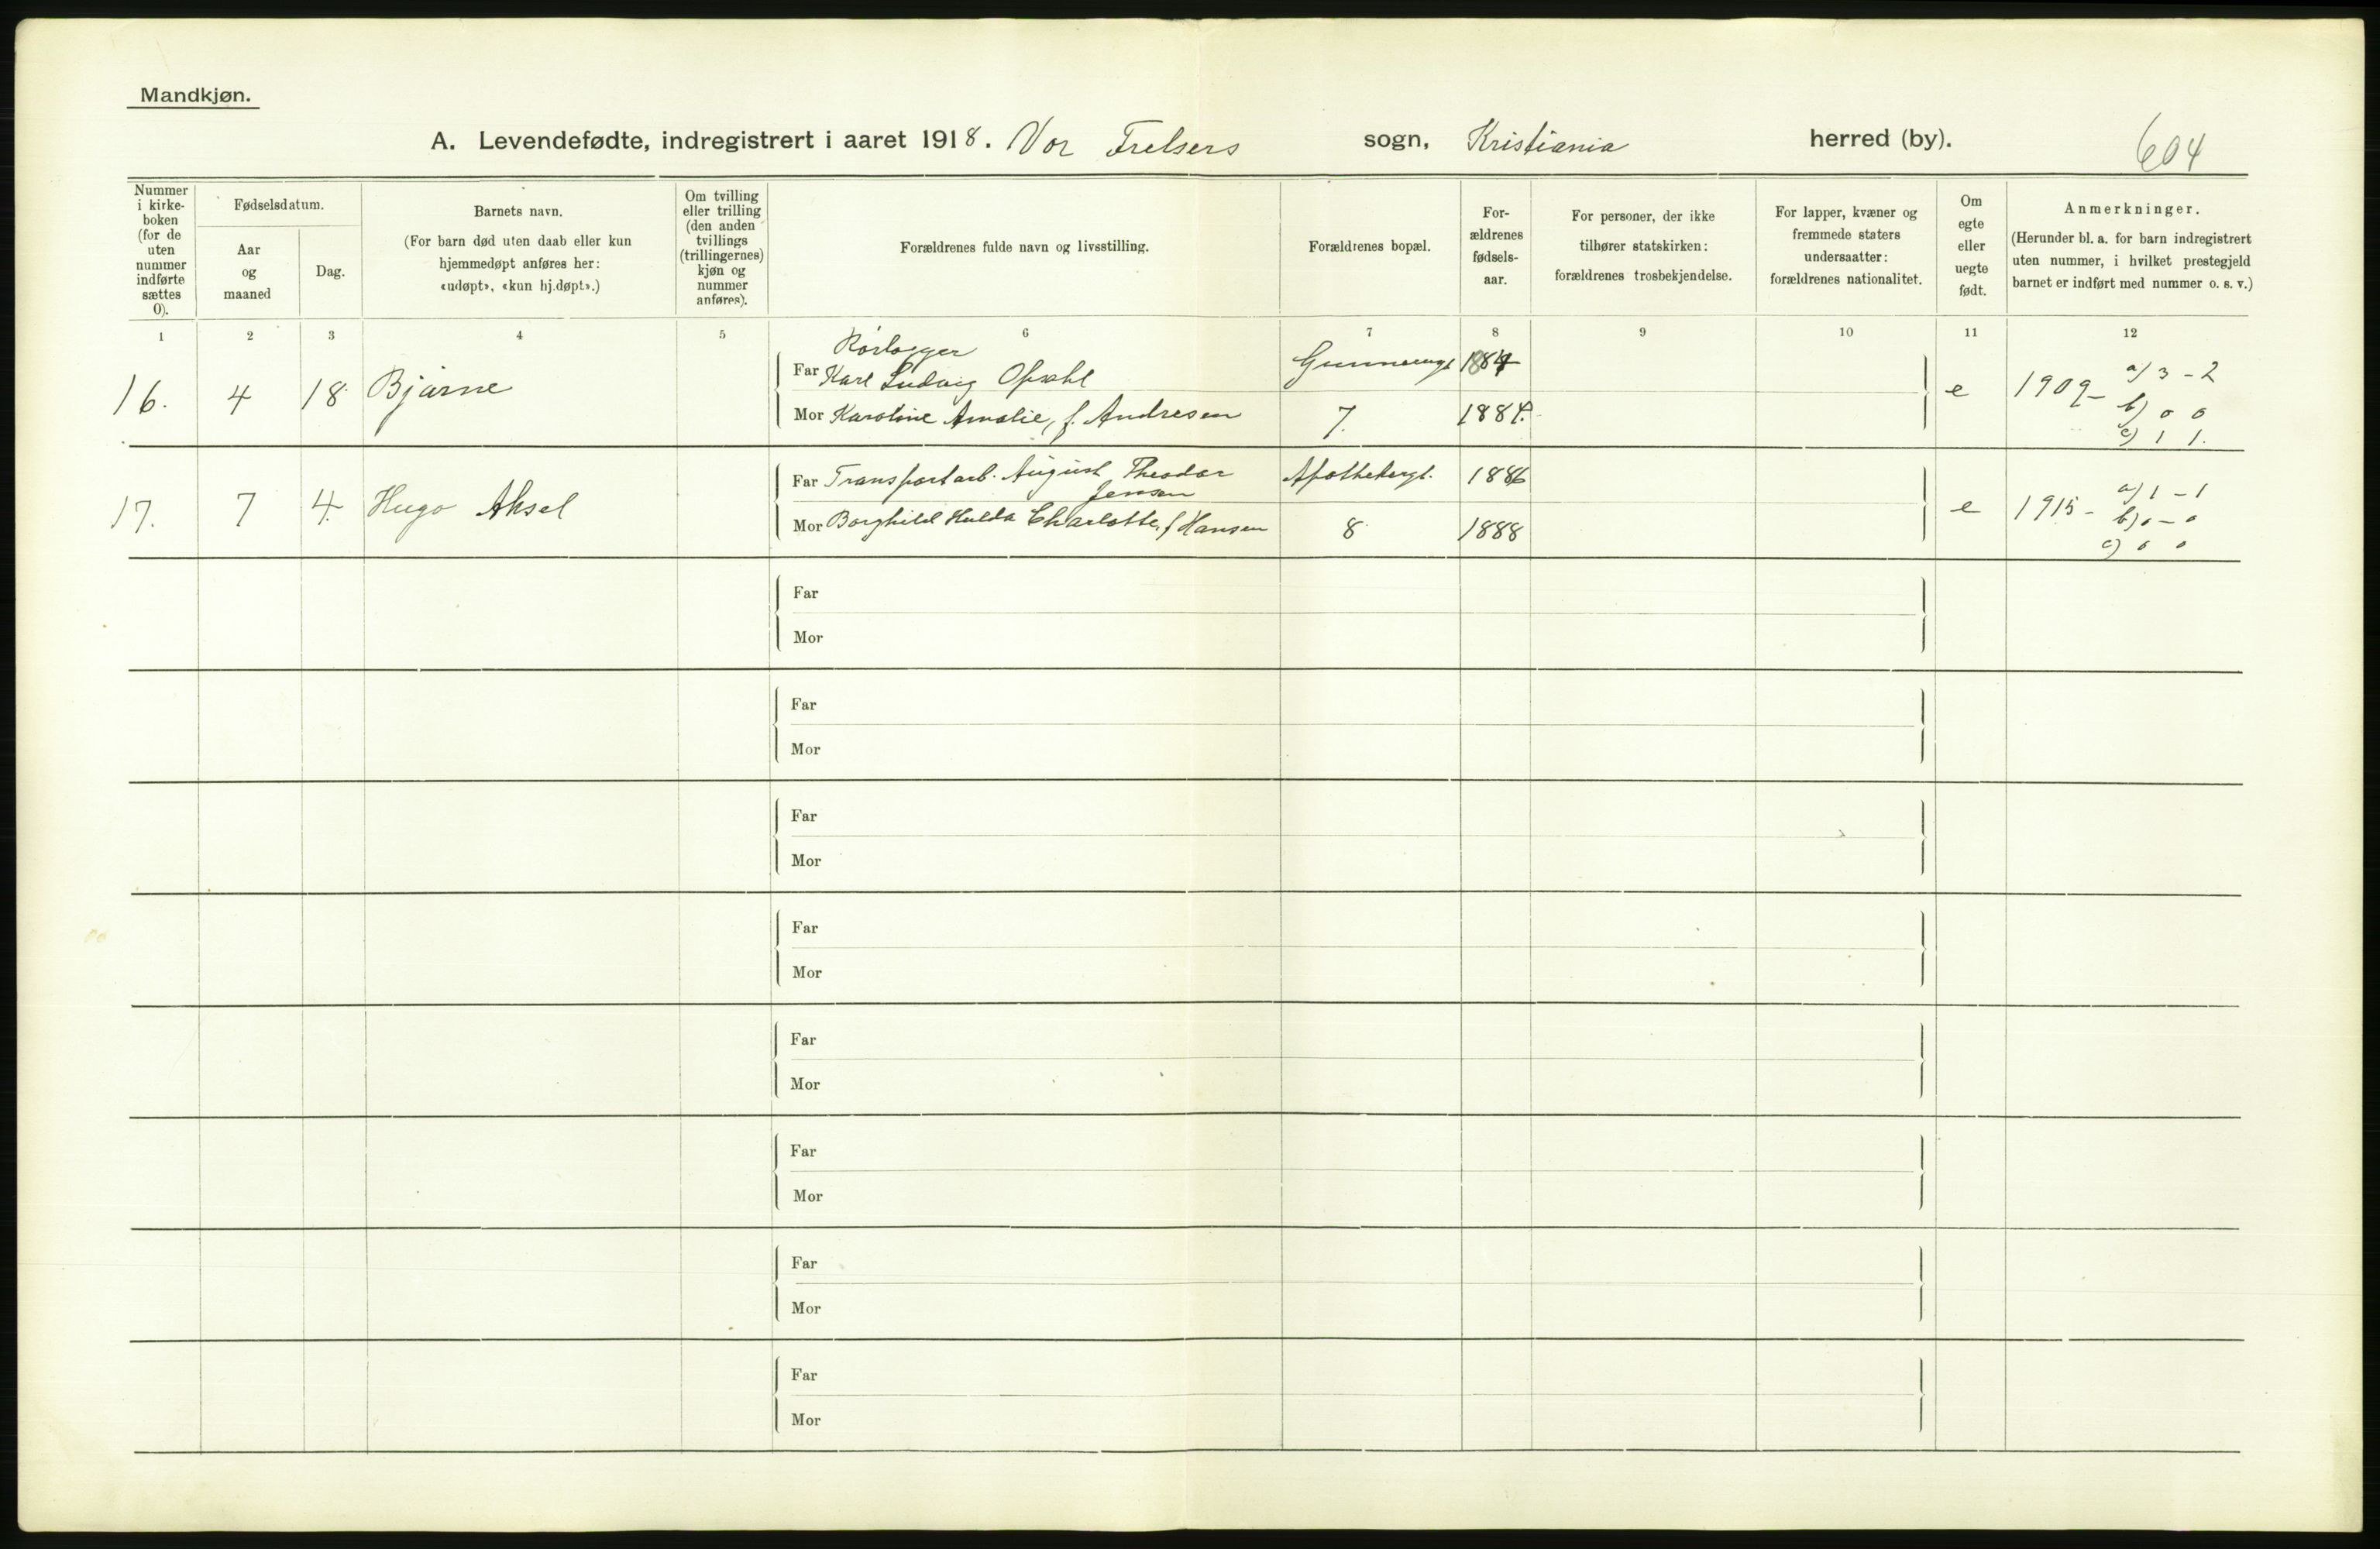 Mandkjøn.
A. Levendefødte, indregistrert i aaret 1918. Vor Frelsers sogn, Kristiania herred (by). 604
Nummer
i kirke-
boken
(for de
uten
nummer
indførte
sættes
0).
Fødselsdatum.
Aar
og
maaned
Dag.
Barnets navn.
(For barn død uten daab eller kun
hjemmedøpt anføres her:
«udøpt», «kun hj.døpt».)
Om tvilling
eller trilling
(den anden
tvillings
(trillingernes)
kjøn og
nummer
anføres).
Forældrenes fulde navn og livsstilling.
Forældrenes bopæl.
For-
ældrenes
fødsels-
aar.
For personer, der ikke
tilhører statskirken:
forældrenes trosbekjendelse.
For lapper, kvæner og
fremmede staters
undersaatter:
forældrenes nationalitet.
Om
egte
eller
uegte
født.
Anmerkninger.
(Herunder bl. a. for barn indregistrert
uten nummer, i hvilket prestegjeld
barnet er indført med nummer o. s. v.)
1 2 3 4 5 6 7 8 9 10 11 12
16. 4 18. Bjarne
Rørlegger
Far Karl Ludvig Opsahl
Mor Karoline Amalie, f. Andresen 7. 1884.
e 1909- a) 3 - 2
b) 0 0
c) 1 1.
17. 7 4. Hugo Aksel
Far Transportarb. August Theodor Apothekergt. 1886
Jensen
Mor Borghild Hulda Charlotte, f Hansen 8. 1888
e 1915- a) 1 - 1
b) 0 - 0
c) 0 0
Far
Mor
Far
Mor
Far
Mor
Far
Mor
Far
Mor
Far
Mor
Far
Mor
Far
Mor